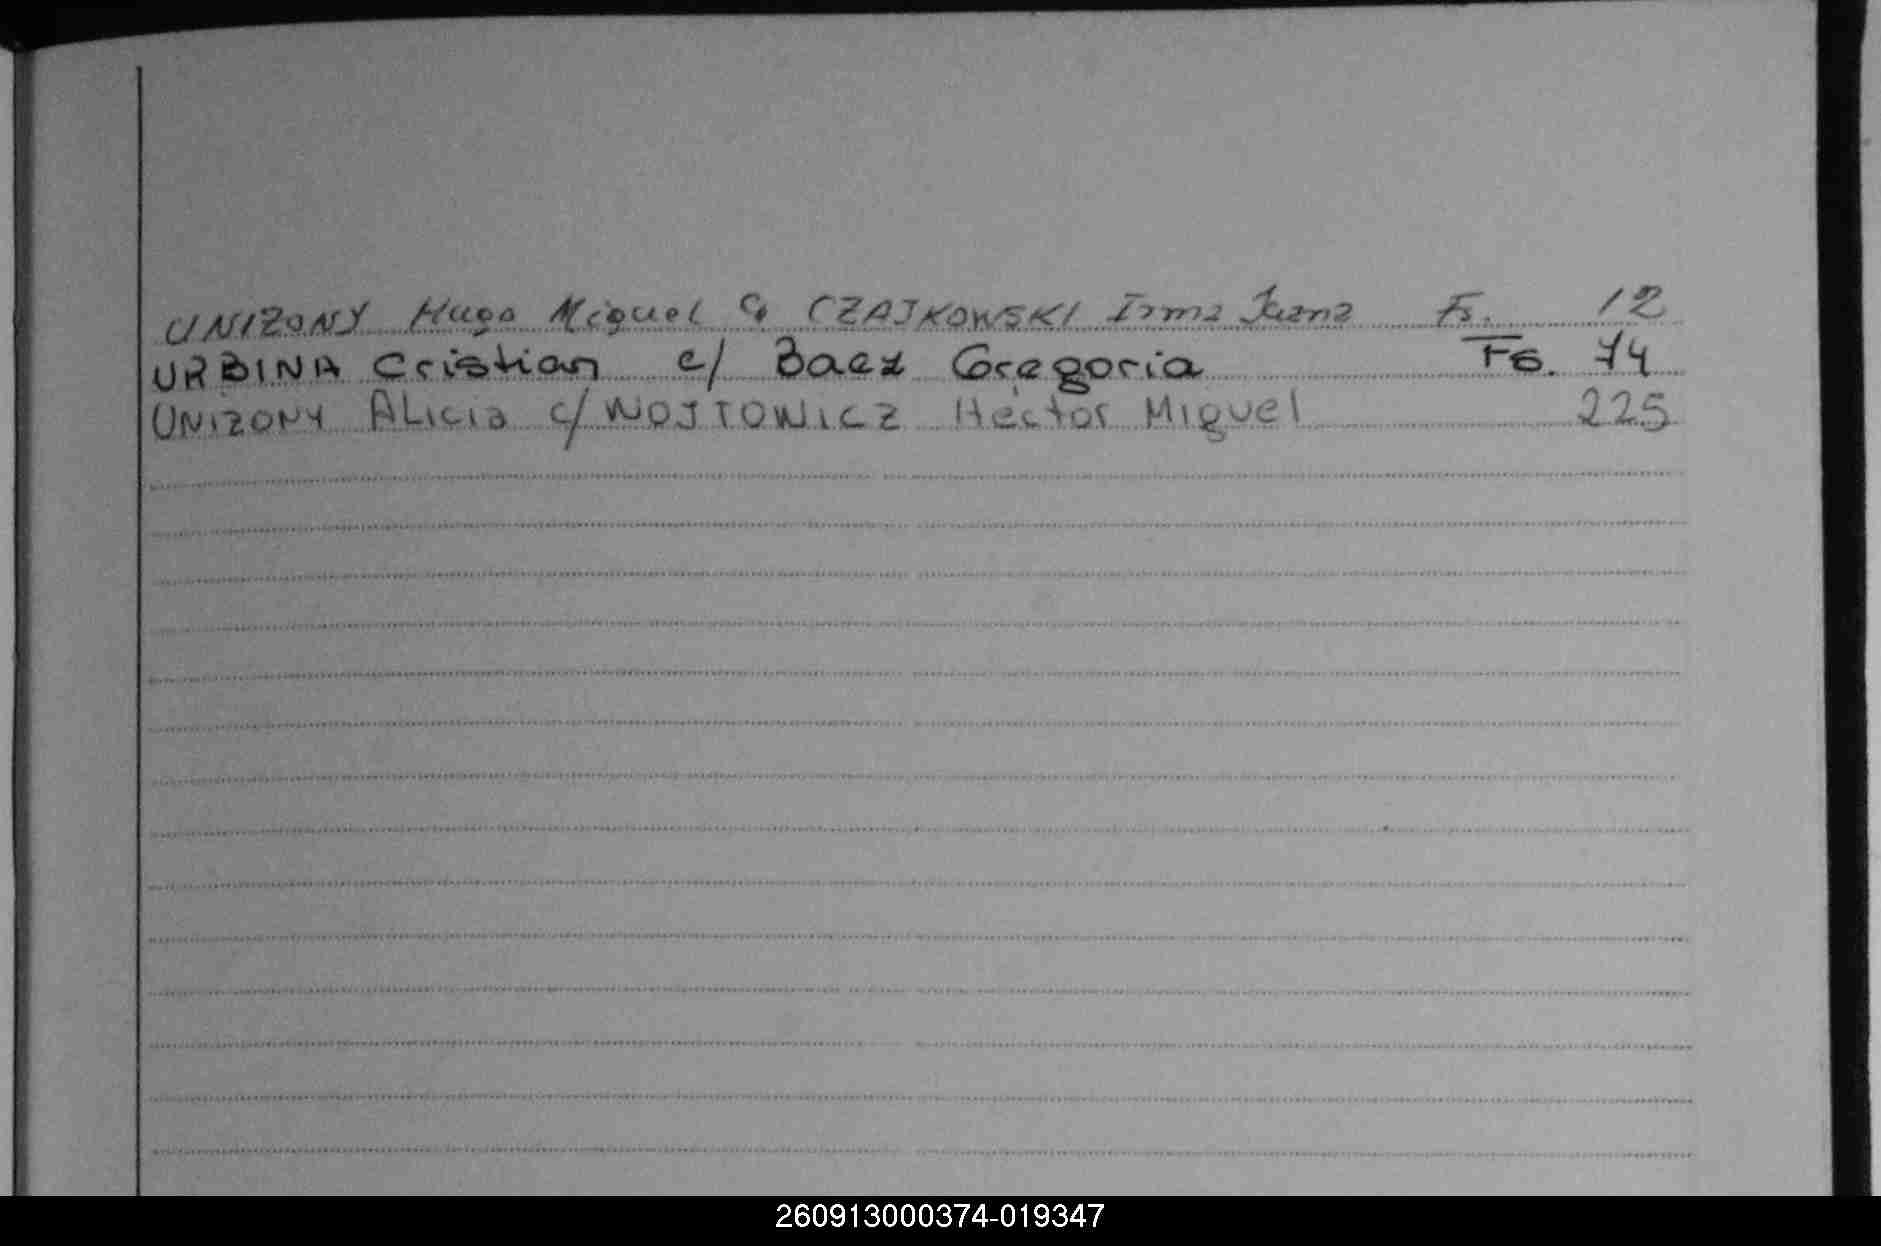 UNIZONY Hugo Miguel c/ CZAJKOWSKI Irma Juana Fs. 12
URBINA Cristian c/ Baez Gregoria Fs. 74
UNIZONY ALicia c/ WOJTOWICZ Héctor Miguel 225
260913000374-019347